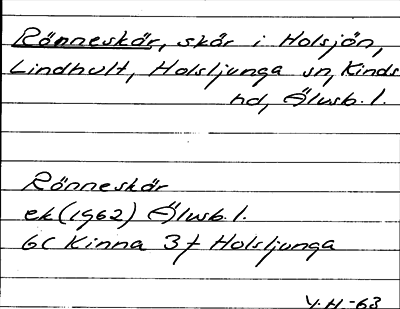 Rönneskär, skär i Holsjön,
Lindhult, Holsljunga sn, Kinds
hd, Älvsb. l.
Rönneskär
ek (1962) Älvsb. l.
6C Kinna 3f Holsljunga
Y.H.-63